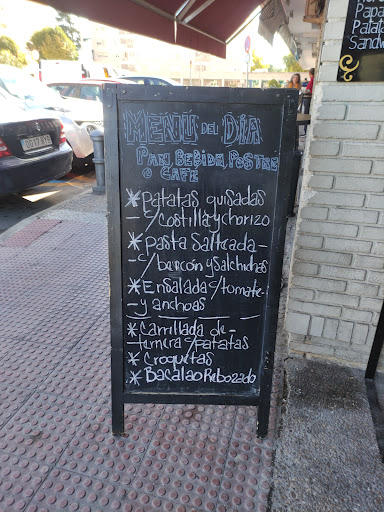 MENÚ DEL DÍA
PAN, BEBIDA, POSTRE
O CAFE
* Patatas guisadas
- c/costilla y chorizo
* Pasta Salteada -
- c/bancón y Salchichas
* Ensalada c/tomate -
- y anchoas
* Carrillada de -
ternera c/patatas
* Croquetas
* Bacalao Rebozado